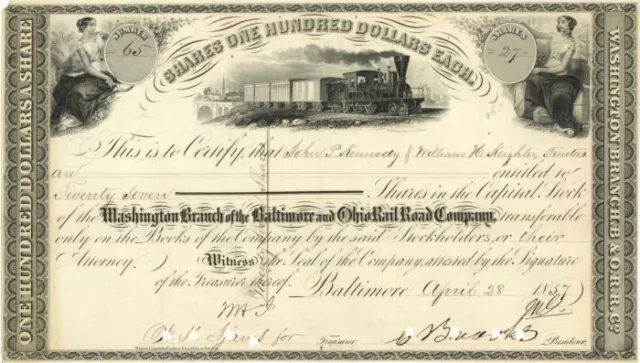 NUMBER
65
SHARES ONE HUNDRED DOLLARS EACH.
SHARES
27
ONE HUNDRED DOLLARS A SHARE
WASHINGTON BRANCH B. & O. R. R. Co.
This is to Certify, that John P. Kennedy & William H. Keighler, Trustees
are entitled to
Twenty Seven Shares in the Capital Stock
of the Washington Branch of the Baltimore and Ohio Rail Road Company, transferable
only on the Books of the Company by the said Stockholders, or their
Attorney. Witness the Seal of the Company, attested by the Signature
of the Treasurer thereof. Baltimore April 28 1857
for Treasurer President